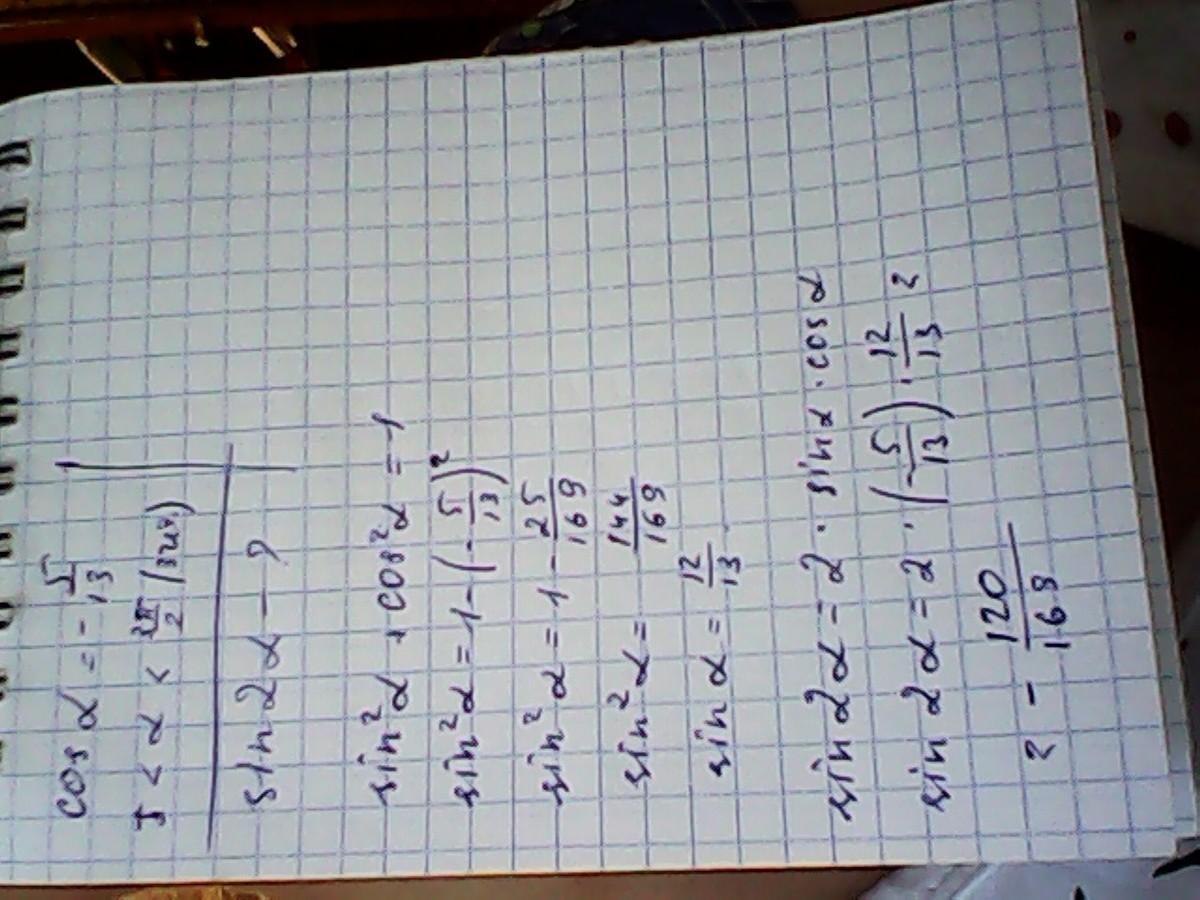 cos α = - 5/13
π < α < 3π/2 (3
sin2α — ?
sin²α + cos²α = 1
sin²α = 1 - (- 5/13)²
sin²α = 1 - 25/169
sin²α = 144/169
sin α = 12/13
sin2α = 2 · sinα · cosα
sin2α = 2 · (- 5/13) · 12/13 =
= - 120/169